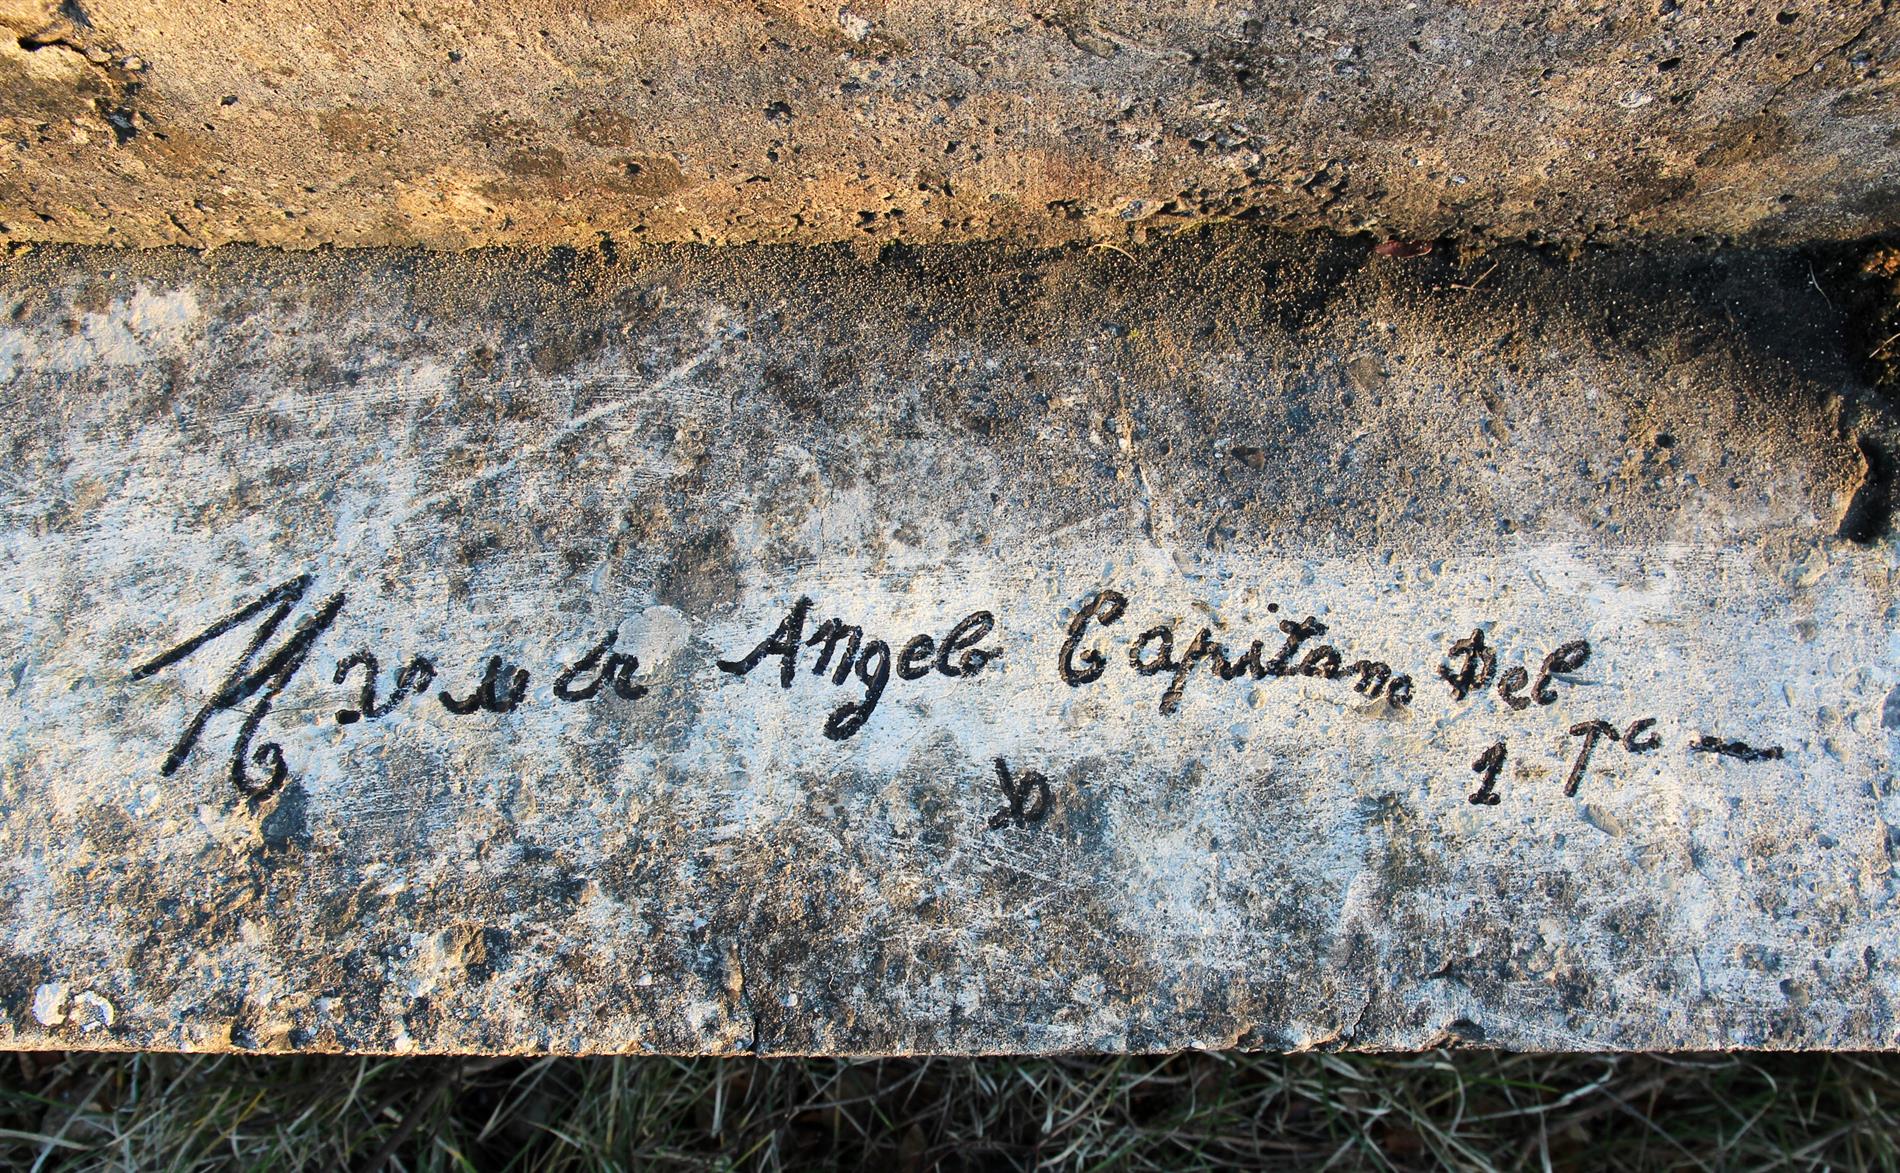 Angelo Capitano Del
1 Ta —
b